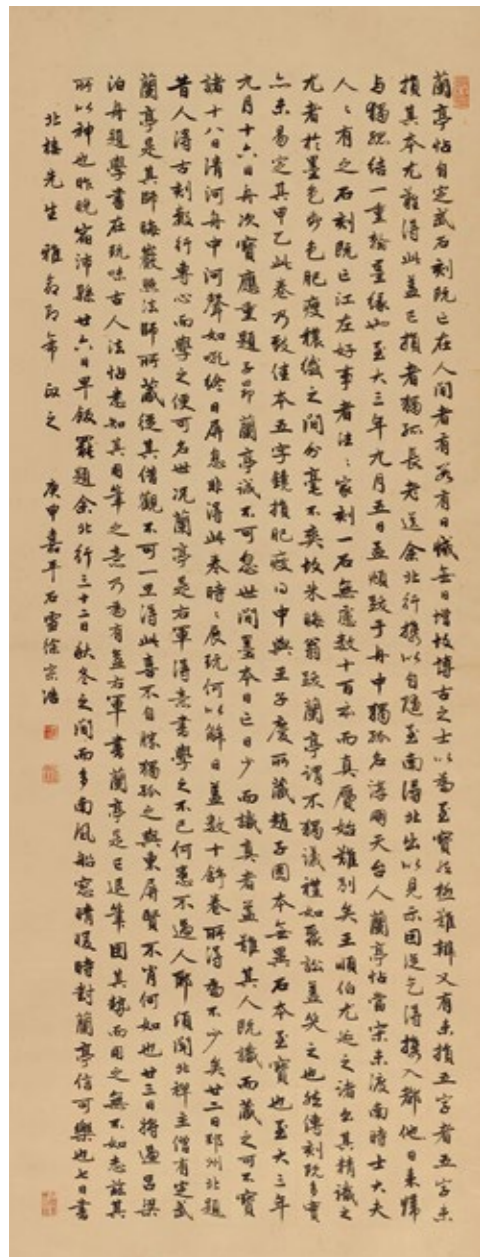 蘭亭帖自定武石刻既亡在人間者有數有日減無日增故博古之士以為至寶然極難辨又有未損五字者五字未
損其本尤難得此蓋已損者獨孤長老送余北行携以自隨至南潯北出以見示因從乞得携入都他日來歸
与獨孤結一重翰墨緣也至大三年九月五日孟頫跋于舟中獨孤名淳朋天台人蘭亭帖當宋未渡南時士大夫
人〻有之石刻既亡江左好事者往〻家刻一石無慮數十百本而真贋始難別矣王順伯尤延之諸公其精識之
尤者於墨色帋色肥瘦穠纖之間分毫不爽故朱晦翁跋蘭亭謂不獨議禮如聚訟蓋笑之也然傳刻既多實
亦未易定其甲乙此卷乃致佳本五字鑱損肥瘦得中與王子慶所藏趙子固本無異石本至寶也至大三年
九月十六日舟次寶應重題子昂蘭亭誠不可忽世間墨本日亡日少而識真者蓋難其人既識而藏之可不寶
諸十八日清河舟中河聲如吼終日屏息非得此卷時〻展玩何以解日蓋數十舒卷所得為不少矣廿二日邳州北題
昔人得古刻數行專心而學之便可名世況蘭亭是右軍得意書學之不已何患不過人耶頃聞北禪主僧有定武
蘭亭是其師晦巖照法師所藏從其借觀不可一旦得此喜不自勝獨孤之與東屏賢不肖何如也廿三日將過呂梁
泊舟題學書在玩味古人法帖悉知其用筆之意乃為有益右軍書蘭亭是已退筆因其勢而用之無不如志茲其
所以神也昨晚宿沛縣廿六日早飯罷題余北行三十二日秋冬之間而多南風船窓晴暖時對蘭亭信可樂也七日書
北樓先生雅鑒即希政之 庚申嘉平石雪徐宗浩